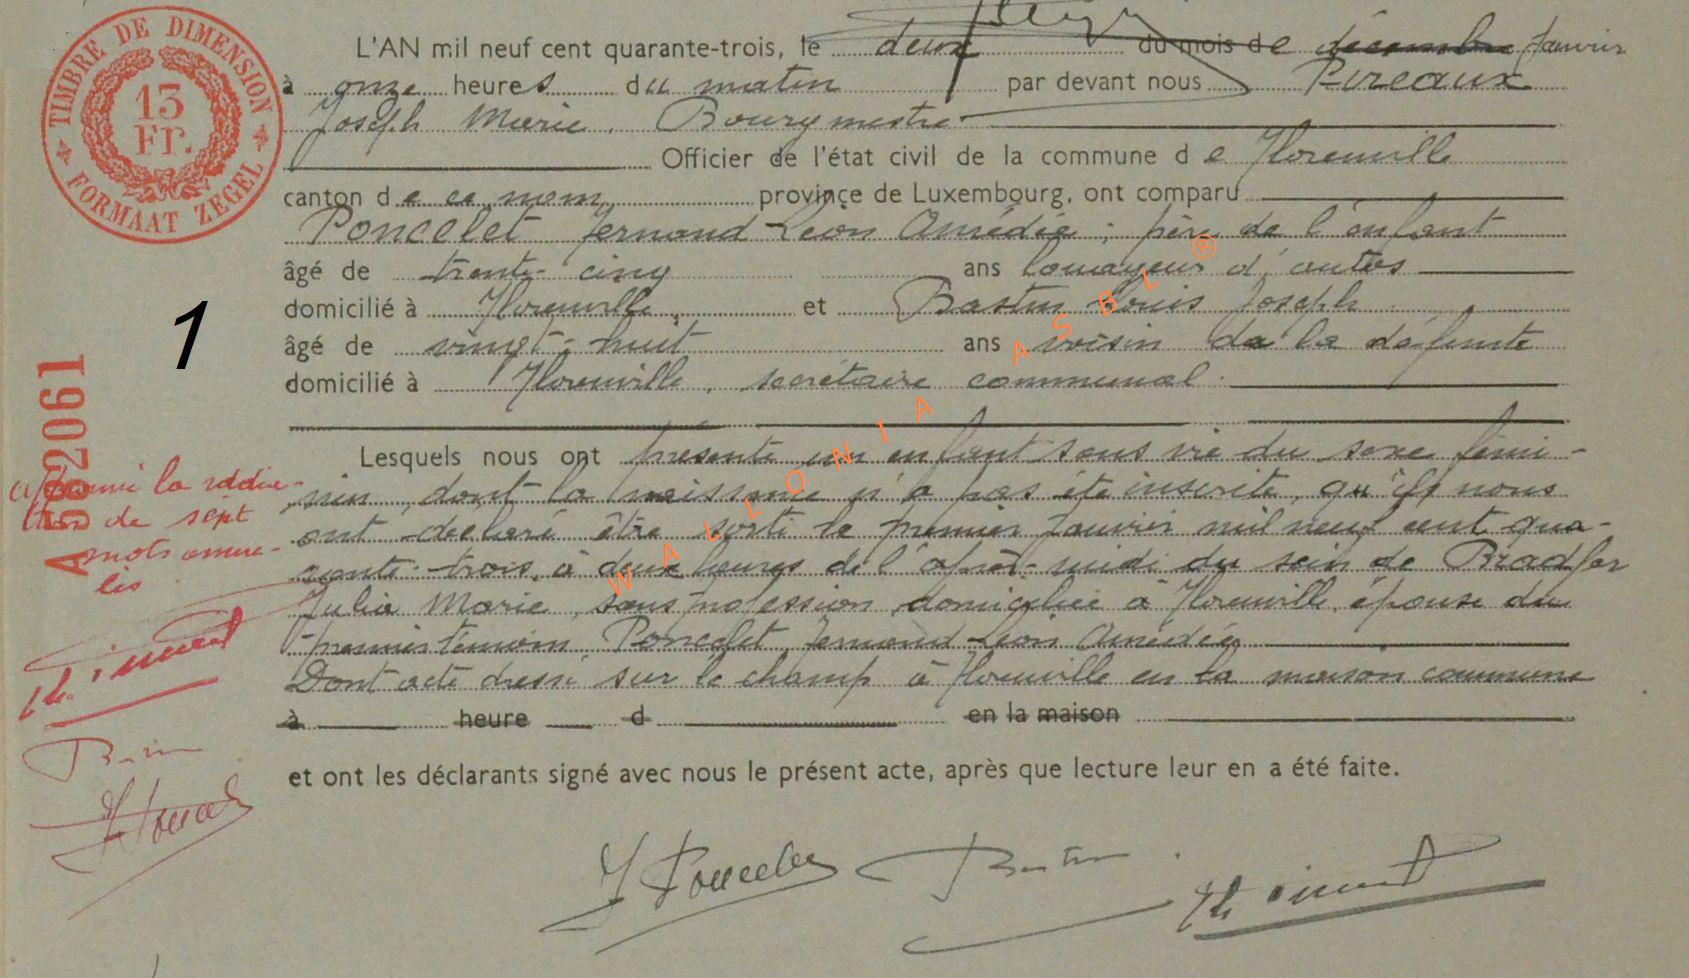 TIMBRE DE DIMENSION
13
Fr.
FORMAAT ZEGEL
L'AN mil neuf cent quarante-trois, le deux du mois de décembre Janvier
à onze heures du matin par devant nous Pireaux
Joseph Marie, Bourgmestre
Officier de l'état civil de la commune de Florenville
canton de ce nom, province de Luxembourg, ont comparu
Poncelet Fernand Léon Amédée ; père de l'enfant
âgé de trente-cinq ans d'autos
domicilié à Florenville, et Bastin Louis Joseph
âgé de vingt-huit ans voisin de la défunte
domicilié à Florenville, secrétaire communal.
Lesquels nous ont présenté un enfant sans vie du sexe fémi-
nin, dont la naissance n'a pas été inscrite, qu'ils nous
ont déclaré être sorti le premier Janvier mil neuf cent qua-
rante-trois, à deux heures de l'après-midi du sein de Bradfer
Julia Marie, sans profession, domiciliée à Florenville, épouse du
premier témoin Poncelet Fernand Léon Amédée
Dont acte dressé sur le champ à Florenville en la maison communale
à heure d en la maison
et ont les déclarants signé avec nous le présent acte, après que lecture leur en a été faite.
F Poncelet Bastin
1
A 582061
Approuvé la radia-
tion de sept
mots annu-
lés
Bastin
F Poncelet
WALLONIA ASBL ®